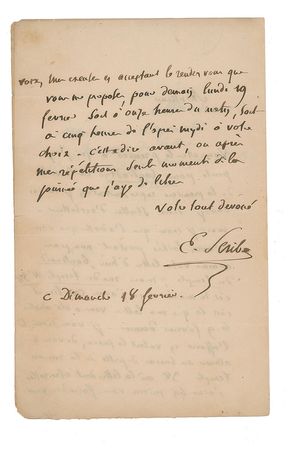 vous m'en excuser en acceptant le rendez vous que
vous me proposez, pour demain lundi 19
fevrier soit à onze heure du matin, soit
à cinq heure de l'après mydi à votre
choix - c'est adire avant, ou après
mes répétitions seuls moments de la
journée que j'aye de libre
Votre tout devoué
E. Scribe
c Dimanche 18 fevrier.